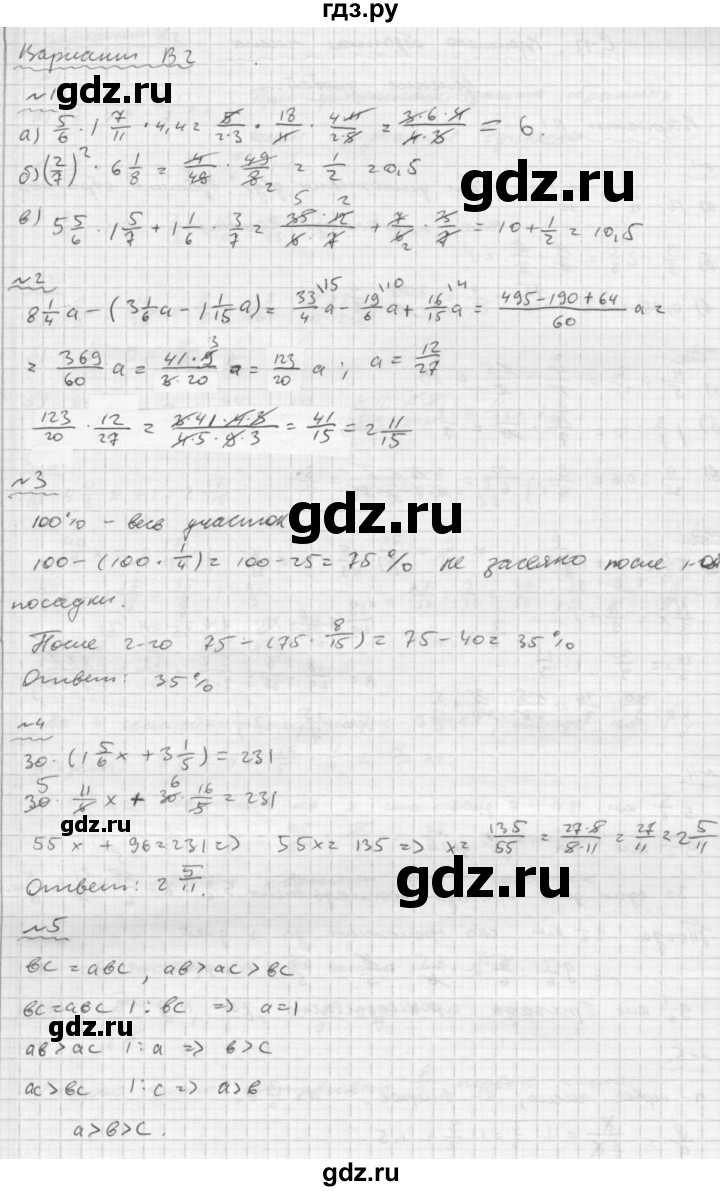 гдз.ру
Вариант В2
gdz.ru
№1
а) 5/6 · 1 7/11 · 4,4 = 5/(2·3) · 18/11 · (4·11)/(2·5) = (3·6·4)/(4·3) = 6.
б) (2/7)² · 6 1/8 = 4/49 · 49/8 = 1/2 = 0,5
gdz.ru
в) 5 5/6 · 1 5/7 + 1 1/6 · 3/7 = (35·12)/(6·7) + 7/6 · 3/7 = 10 + 1/2 = 10,5
№2
8 1/4 a - (3 1/6 a - 1 1/15 a) = 33/4 a - 19/6 a + 16/15 a = (495-190+64)/60 a =
= 369/60 a = (41·9)/(3·20) a = 123/20 a ; a = 12/27
123/20 · 12/27 = (3·41·4·3)/(4·5·9·3) = 41/15 = 2 11/15
№3
gdz.ru
100% - весь участок
100 - (100 · 1/4) = 100 - 25 = 75 % не засеяно после 1-ой
посадки.
После 2-го 75 - (75 · 8/15) = 75 - 40 = 35 %
Ответ: 35 %
№4
30 · (1 5/6 x + 3 1/5) = 231
30 · 11/6 x + 30 · 16/5 = 231
gdz.ru
55x + 96 = 231 => 55x = 135 => x = 135/55 = (27·8)/(8·11) = 27/11 = 2 5/11
Ответ: 2 5/11.
gdz.ru
№5
вс = авс, ав > ас > вс
вс = авс |: вс => а = 1
gdz.ru
ав > ас |: а => в > с
ас > вс |: с => а > в
а > в > с.
gdz.ru